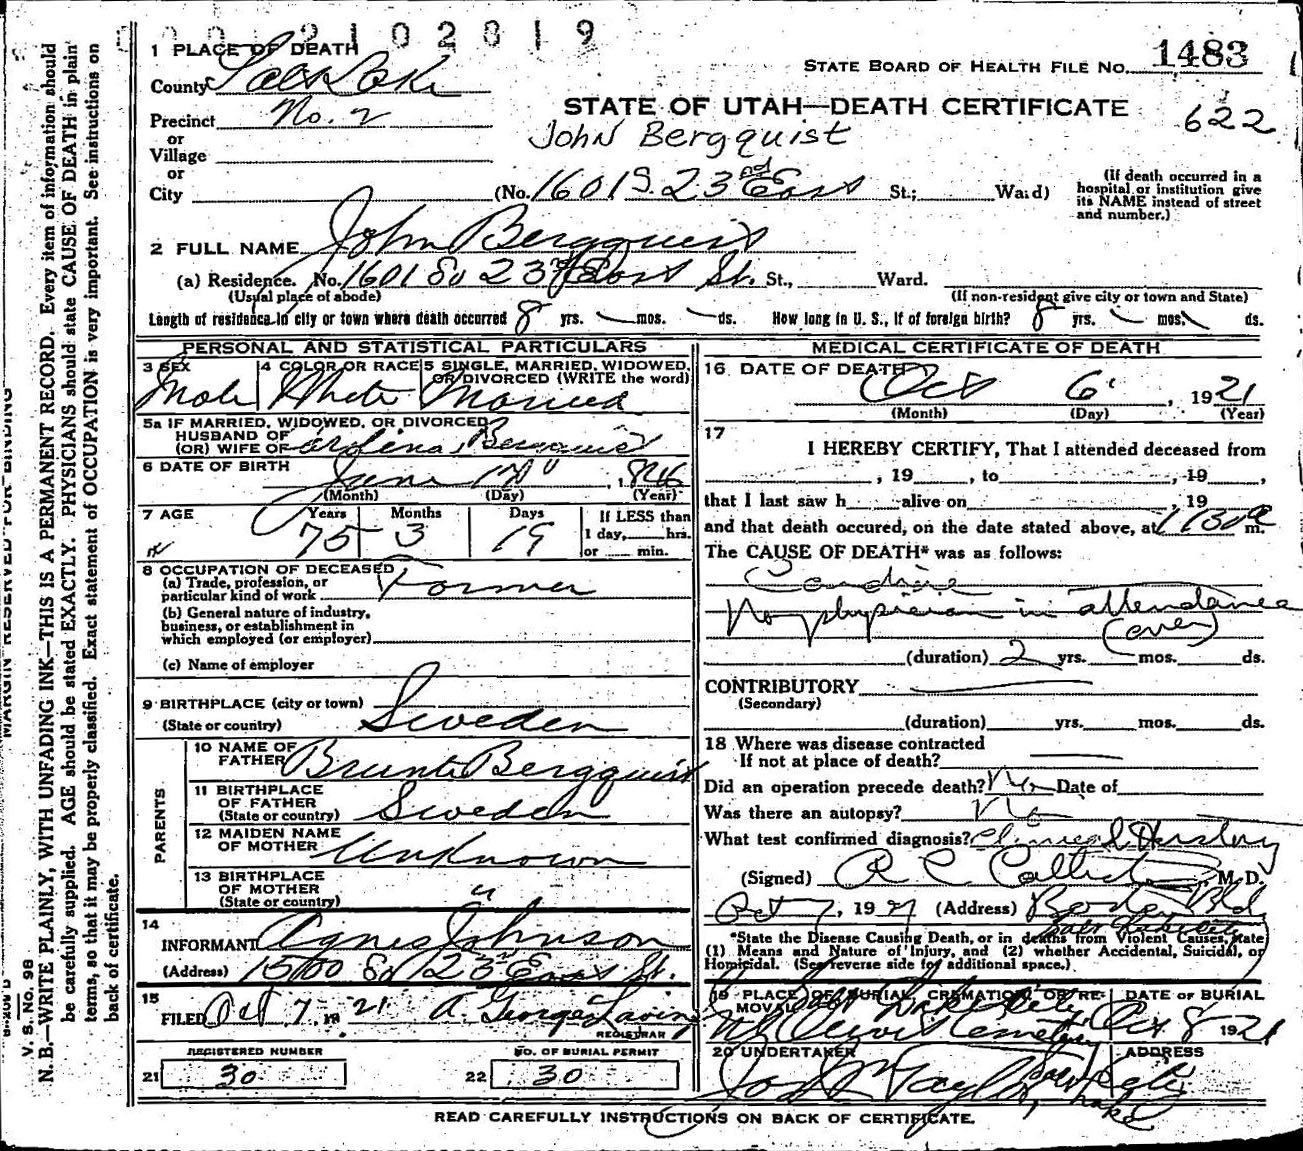 2102819
1 PLACE OF DEATH
County Salt Lake
STATE BOARD OF HEALTH FILE NO. 1483
Precinct No. 2
STATE OF UTAH—DEATH CERTIFICATE
622
or
Village
John Bergquist
or
City (No. 1601 S. 23rd East St.; Ward)
(If death occurred in a hospital or institution give its NAME instead of street and number.)
2 FULL NAME John Bergquist
(a) Residence. No. 1601 So 23rd East St. St., Ward.
(Usual place of abode) (If non-resident give city or town and State)
Length of residence in city or town where death occurred 8 yrs. mos. ds. How long in U. S., if of foreign birth? 8 yrs. mos. ds.
PERSONAL AND STATISTICAL PARTICULARS
3 SEX Male
4 COLOR OR RACE White
5 SINGLE, MARRIED, WIDOWED, OR DIVORCED (WRITE the word) Married
5a IF MARRIED, WIDOWED, OR DIVORCED
HUSBAND OF
(OR) WIFE OF Bergquist
6 DATE OF BIRTH
June 17 1846
(Month) (Day) (Year)
7 AGE Years Months Days If LESS than
75 3 19 1 day, hrs.
or min.
8 OCCUPATION OF DECEASED
(a) Trade, profession, or
particular kind of work Farmer
(b) General nature of industry,
business, or establishment in
which employed (or employer)
(c) Name of employer
9 BIRTHPLACE (city or town)
(State or country) Sweden
PARENTS
10 NAME OF
FATHER Bergquist
11 BIRTHPLACE
OF FATHER
(State or country) Sweden
12 MAIDEN NAME
OF MOTHER Unknown
13 BIRTHPLACE
OF MOTHER "
(State or country)
14
INFORMANT Agnes Johnson
(Address) 1500 So 23rd East St.
15
FILED Oct 7, 19 21 A. George
REGISTRAR
REGISTERED NUMBER
21 30
NO. OF BURIAL PERMIT
22 30
MEDICAL CERTIFICATE OF DEATH
16 DATE OF DEATH
Oct 6, 1921
(Month) (Day) (Year)
17
I HEREBY CERTIFY, That I attended deceased from
, 19 , to , 19 ,
that I last saw h alive on , 19
and that death occured, on the date stated above, at 1130a m.
The CAUSE OF DEATH* was as follows:
No physician in attendance
(over)
(duration) 2 yrs. mos. ds.
CONTRIBUTORY
(Secondary)
(duration) yrs. mos. ds.
18 Where was disease contracted
If not at place of death?
Did an operation precede death? No Date of
Was there an autopsy? No
What test confirmed diagnosis? Clinical History
(Signed) R C M. D.
Oct 7, 1921 (Address)
*State the Disease Causing Death, or in deaths from Violent Causes, state
(1) Means and Nature of Injury, and (2) whether Accidental, Suicidal, or
Homicidal. (See reverse side for additional space.)
19 PLACE OF BURIAL, CREMATION, OR REMOVAL
Salt Lake City
Mt Olivet Cemetery
DATE OF BURIAL
Oct 8 1921
20 UNDERTAKER
Taylor
ADDRESS
Salt Lake
READ CAREFULLY INSTRUCTIONS ON BACK OF CERTIFICATE.
MARGIN RESERVED FOR BINDING
V. S. No. 98
N. B.—WRITE PLAINLY, WITH UNFADING INK—THIS IS A PERMANENT RECORD. Every item of information should
be carefully supplied. AGE should be stated EXACTLY. PHYSICIANS should state CAUSE OF DEATH in plain
terms, so that it may be properly classified. Exact statement of OCCUPATION is very important. See instructions on
back of certificate.